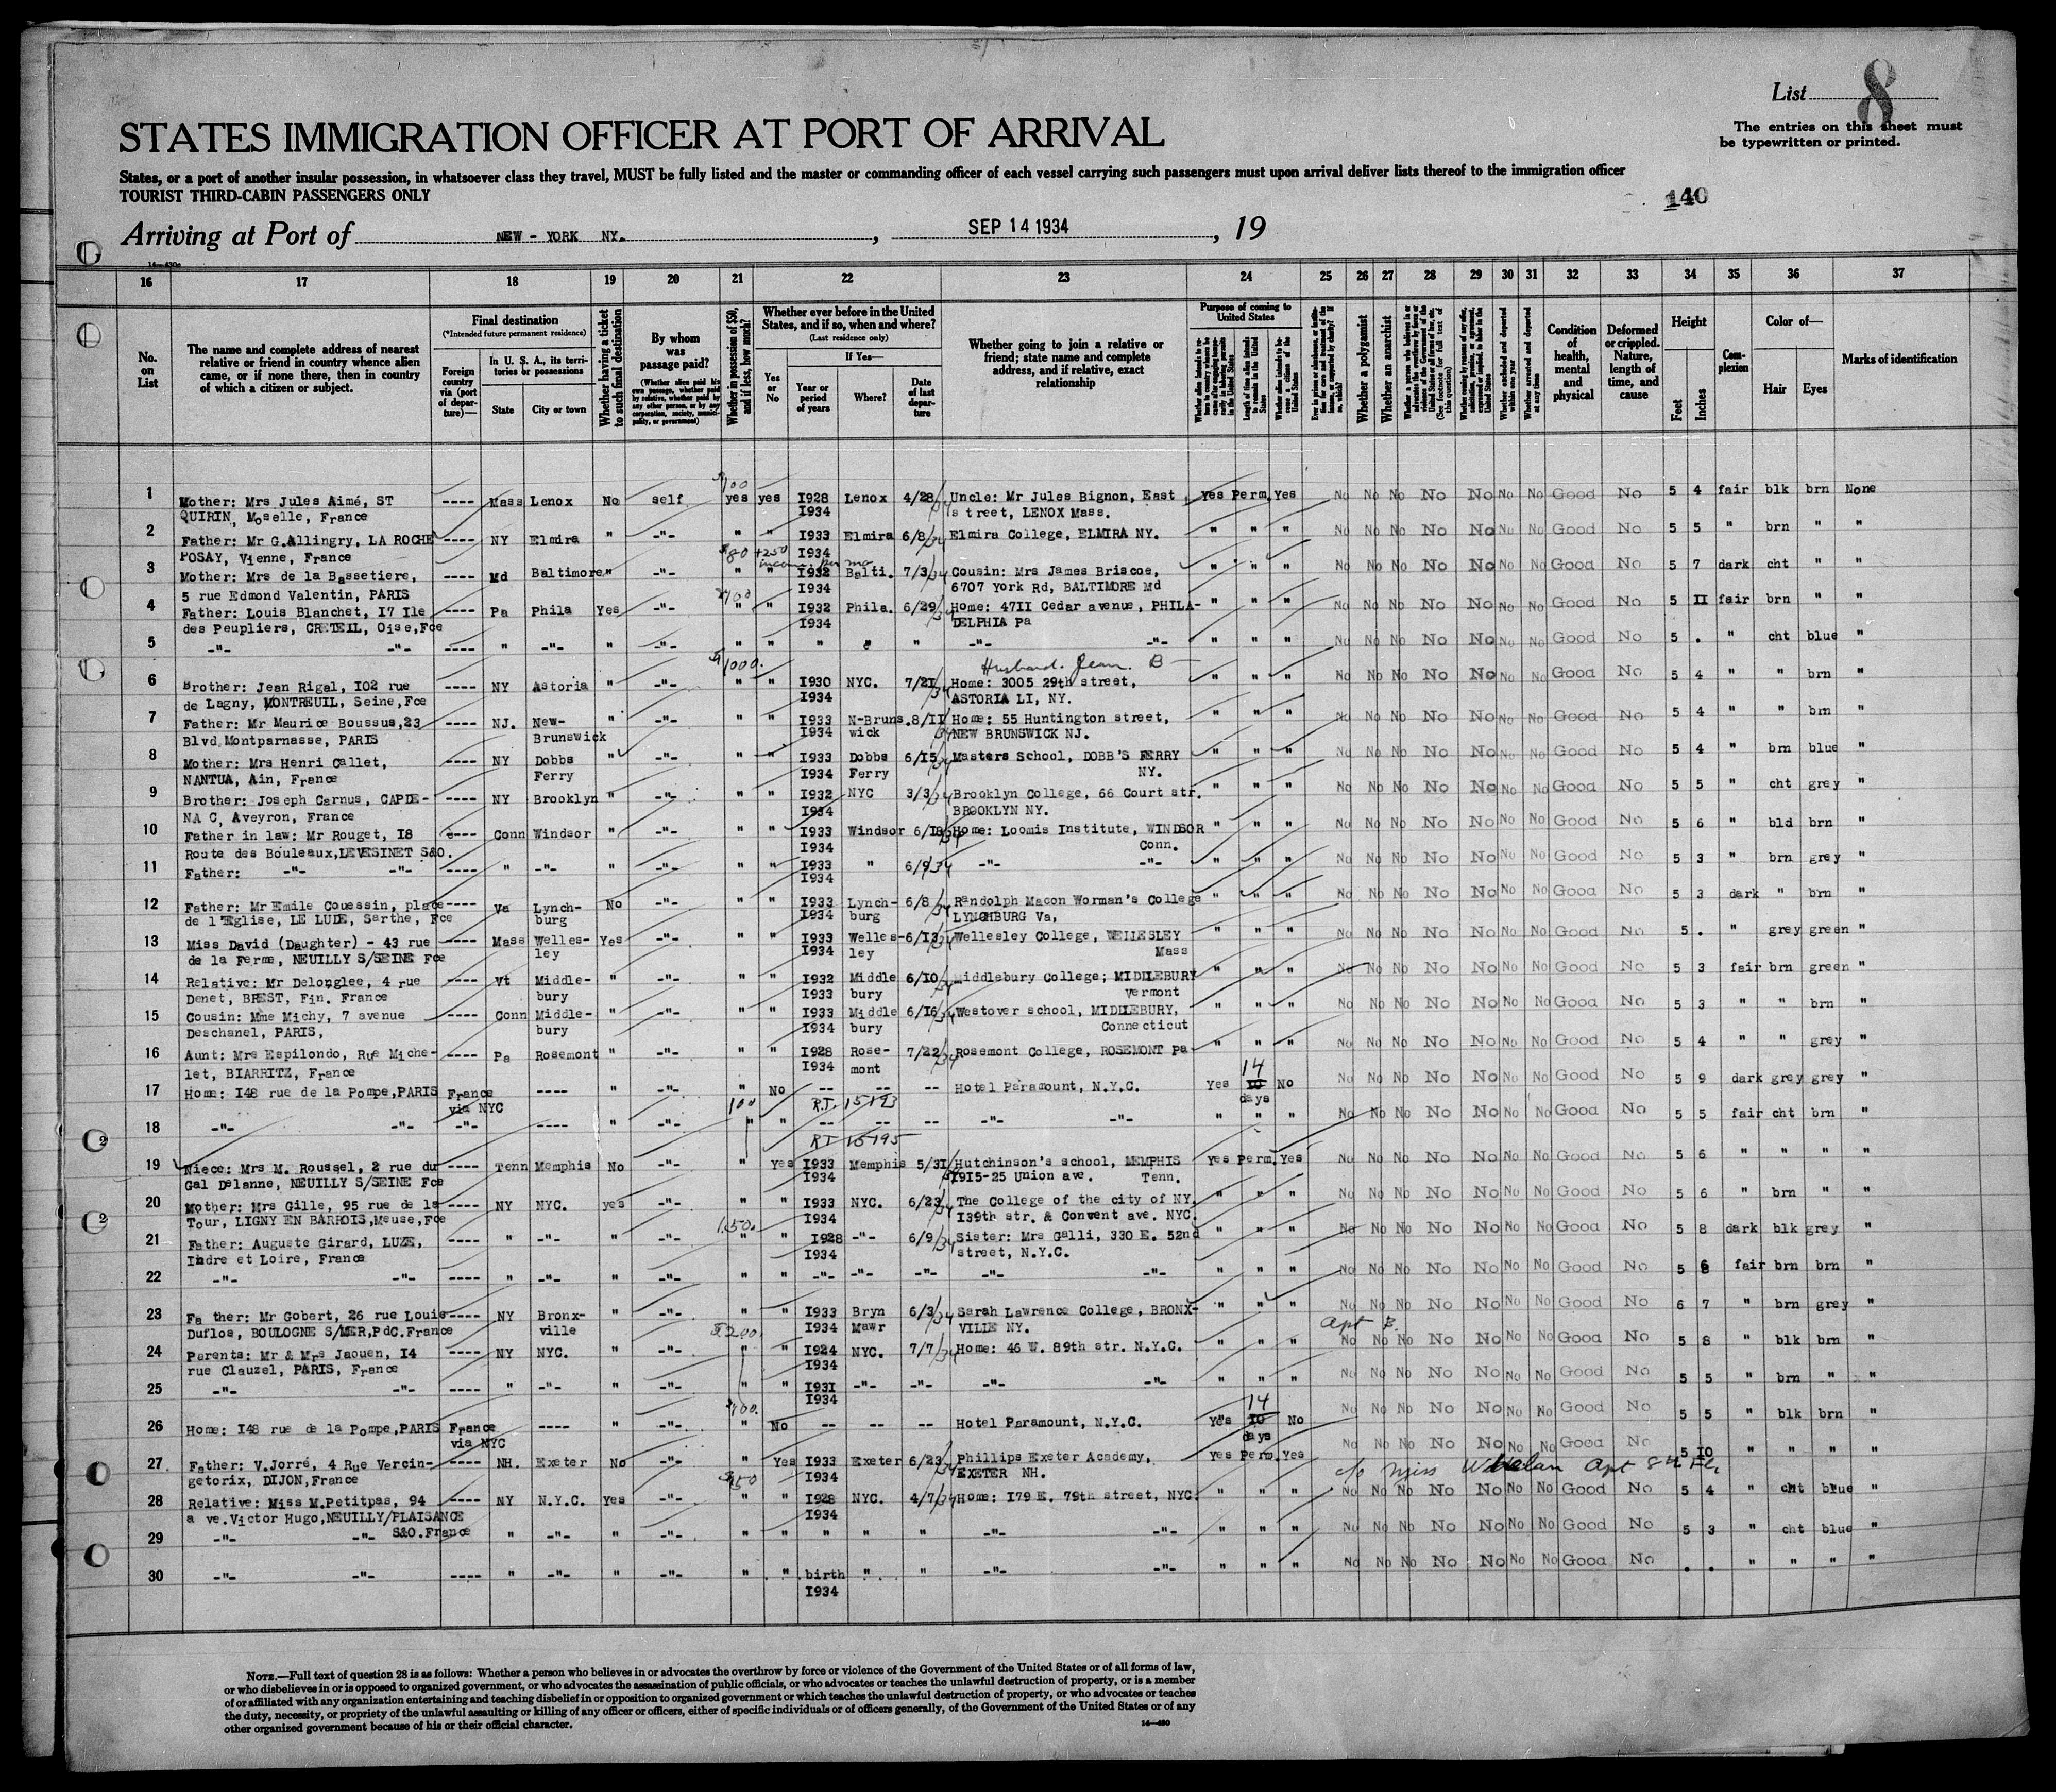 List 8
The entries on this sheet must
be typewritten or printed.
STATES IMMIGRATION OFFICER AT PORT OF ARRIVAL
States, or a port of another insular possession, in whatsoever class they travel, MUST be fully listed and the master or commanding officer of each vessel carrying such passengers must upon arrival deliver lists thereof to the immigration officer
TOURIST THIRD-CABIN PASSENGERS ONLY
140
Arriving at Port of NEW - YORK NY. , SEP 14 1934 , 19
16 17 18 19 20 21 22 23 24 25 26 27 28 29 30 31 32 33 34 35 36 37
No. on List
The name and complete address of nearest relative or friend in country whence alien came, or if none there, then in country of which a citizen or subject.
Final destination
(*Intended future permanent residence)
Foreign country via (port of departure)—
In U. S. A., its territories or possessions
State
City or town
Whether having a ticket to such final destination
By whom was passage paid?
(Whether alien paid his own passage, whether paid by relative, whether paid by any other person, or by any corporation, society, municipality, or government)
Whether in possession of $50, and if less, how much?
Whether ever before in the United States, and if so, when and where?
(Last residence only)
Yes or No
If Yes—
Year or period of years
Where?
Date of last departure
Whether going to join a relative or friend; state name and complete address, and if relative, exact relationship
Purpose of coming to United States
Whether a polygamist
Whether an anarchist
Condition of health, mental and physical
Deformed or crippled. Nature, length of time, and cause
Height
Feet
Inches
Complexion
Color of—
Hair
Eyes
Marks of identification
$100
1 Mother: Mrs Jules Aimé, ST ---- Mass Lenox No self yes yes I928 Lenox 4/28/34 Uncle: Mr Jules Bignon, East Yes Perm. Yes No No No No No No No Good No 5 4 fair blk brn None
QUIRIN, Moselle, France I934 street, LENOX Mass.
2 Father: Mr G.Allingry, LA ROCHE ---- NY Elmira " -"- " " I933 Elmira 6/8/34 Elmira College, ELMIRA NY. " " " No No No No No No No Good No 5 5 " brn " "
POSAY, Vienne, France $80 +250 I934
3 Mother: Mrs de la Bassetiere, ---- Md Baltimore " -"- " " I932 Balti. 7/3/34 Cousin: Mrs James Briscoe, " " " No No No No No No No Good No 5 7 dark cht " "
5 rue Edmond Valentin, PARIS $100 I934 6707 York Rd, BALTIMORE Md
4 Father: Louis Blanchet, I7 Ile ---- Pa Phila Yes -"- " " I932 Phila. 6/29/34 Home: 47II Cedar avenue, PHILA- " " " No No No No No No No Good No 5 II fair brn " "
des Peupliers, CRETEIL, Oise,Fce I934 DELPHIA Pa
5 -"- -"- ---- " -"- " -"- " " " " " -"- -"- " " " No No No No No No No Good No 5 . " cht blue "
$1000. Husband. Jean B —
6 Brother: Jean Rigal, I02 rue ---- NY Astoria " -"- " " I930 NYC. 7/2I/34 Home: 3005 29th street, " " " No No No No No No No Good No 5 4 " " brn "
de Lagny, MONTREUIL, Seine,Fce I934 ASTORIA LI, NY.
7 Father: Mr Maurice Boussus,23 ---- NJ. New- " -"- " " I933 N-Bruns. 8/II/34 Home: 55 Huntington street, " " " No No No No No No No Good No 5 4 " " brn "
Blvd Montparnasse, PARIS Brunswick I934 wick NEW BRUNSWICK NJ.
8 Mother: Mrs Henri Callet, ---- NY Dobbs " -"- " " I933 Dobbs 6/I5/34 Masters School, DOBB'S FERRY " " " No No No No No No No Good No 5 4 " brn blue "
NANTUA, Ain, France Ferry I934 Ferry NY.
9 Brother: Joseph Carnus, CAPDE- ---- NY Brooklyn " -"- " " I932 NYC 3/3/34 Brooklyn College, 66 Court str. " " " No No No No No No No Good No 5 5 " cht grey "
NA C, Aveyron, France I934 BROOKLYN NY.
10 Father in law: Mr Rouget, I8 ---- Conn Windsor " -"- " " I933 Windsor 6/I8/34 Home: Loomis Institute, WINDSOR " " " No No No No No No No Good No 5 6 " bld brn "
Route des Bouleaux,LEVESINET S&O. I934 Conn.
11 Father: -"- -"- ---- " -"- " -"- " " I933 " 6/9/34 -"- -"- " " " No No No No No No No Good No 5 3 " brn grey "
I934
12 Father: Mr Emile Couessin, place ---- Va Lynch- No -"- " " I933 Lynch- 6/8/34 Randolph Macon Worman's College " " " No No No No No No No Good No 5 3 dark " brn "
de l'Eglise, LE LUDE, Sarthe, Fce burg I934 burg LYNCHBURG Va,
13 Miss David (Daughter) - 43 rue ---- Mass Welles- Yes -"- " " I933 Welles- 6/I3/34 Wellesley College, WELLESLEY " " " No No No No No No No Good No 5 . " grey green "
de la Ferme, NEUILLY S/SEINE Fce ley I934 ley Mass
14 Relative: Mr Delonglee, 4 rue ---- Vt Middle- " -"- " " I932 Middle 6/I0/34 Middlebury College; MIDDLEBURY " " " No No No No No No No Good No 5 3 fair brn green "
Denet, BREST, Fin. France bury I933 bury Vermont
15 Cousin: Mme Michy, 7 avenue ---- Conn Middle- " -"- " " I933 Middle 6/I6/34 Westover school, MIDDLEBURY, " " " No No No No No No No Good No 5 3 " " brn "
Deschanel, PARIS, bury I934 bury Connecticut
16 Aunt: Mrs Espilondo, Rue Miche- ---- Pa Rosemont " -"- " " I928 Rose- 7/22/34 Rosemont College, ROSEMONT Pa " " " No No No No No No No Good No 5 4 " " grey "
let, BIARRITZ, France I934 mont 14
17 Home: I48 rue de la Pompe,PARIS France ---- " -"- " No -- -- -- Hotel Paramount, N.Y.C. Yes I0 No No No No No No No No Good No 5 9 dark grey grey "
via NYC 100 R.T. 15193 days
18 -"- -"- -"- ---- " -"- " " -- -- -- -"- -"- " " " No No No No No No No Good No 5 5 fair cht brn "
RT 15195
19 Niece: Mrs M. Roussel, 2 rue du ---- Tenn Memphis No -"- " Yes I933 Memphis 5/3I/34 Hutchinson's school, MEMPHIS Yes Perm. Yes No No No No No No No Good No 5 6 " " " "
Gal Delanne, NEUILLY S/SEINE Fce I934 I9I5-25 Union ave. Tenn.
20 Mother: Mrs Gille, 95 rue de la ---- NY NYC. yes -"- " " I933 NYC. 6/23/34 The College of the city of NY. " " " No No No No No No No Good No 5 6 " brn " "
Tour, LIGNY EN BARROIS,Meuse,Fce I934 I39th str. & Convent ave. NYC.
21 Father: Auguste Girard, LUZE, ---- " -"- " -"- " " I928 -"- 6/9/34 Sister: Mrs Galli, 330 E. 52nd " " " No No No No No No No Good No 5 8 dark blk grey "
Indre et Loire, France I934 street, N.Y.C.
22 -"- -"- ---- " -"- " -"- " " -"- -"- -"- -"- -"- " " " No No No No No No No Good No 5 6 fair brn brn "
23 Fa ther: Mr Gobert, 26 rue Louis ---- NY Bronx- " -"- " " I933 Bryn 6/3/34 Sarah Lawrence College, BRONX- " " " No No No No No No No Good No 6 7 " brn grey "
Duflos, BOULOGNE S/MER,PdC.France ville $200. I934 Mawr VILLE NY. Apt B.
24 Parents: Mr & Mrs Jaouen, I4 ---- NY NYC. " -"- " " I924 NYC. 7/7/34 Home: 46 W. 89th str. N.Y.C. " " " No No No No No No No Good No 5 8 " blk brn "
rue Clauzel, PARIS, France I934
25 -"- -"- ---- " -"- " -"- " " I93I -"- -"- -"- -"- " " " No No No No No No No Good No 5 5 " brn " "
$100. I934 14
26 Home: I48 rue de la Pompe,PARIS France ---- " -"- " No -- -- -- Hotel Paramount, N.Y.C. Yes I0 No No No No No No No No Good No 5 5 " blk brn "
via NYC days
27 Father: V.Jorré, 4 Rue Vercin- ---- NH. Exeter No -"- " Yes I933 Exeter 6/23/34 Phillips Exeter Academy, yes Perm. Yes No No No No No No No Good No 5 I0 " " " "
getorix, DIJON,France $50 I934 EXETER NH. c/o Miss Whelan Apt 8th Flr
28 Relative: Miss M.Petitpas, 94 ---- NY N.Y.C. Yes -"- " " I928 NYC. 4/7/34 Home: I79 E. 79th street, NYC. " " " No No No No No No No Good No 5 4 " cht blue "
a ve.Victor Hugo,NEUILLY/PLAISANCE I934
29 -"- -"- S&O.France " -"- " -"- " " " " " -"- -"- " " " No No No No No No No Good No 5 3 " cht blue "
30 -"- -"- ---- " -"- " -"- " " birth " " -"- -"- " " " No No No No No No No Good No . . " " " "
I934
NOTE.—Full text of question 28 is as follows: Whether a person who believes in or advocates the overthrow by force or violence of the Government of the United States or of all forms of law,
or who disbelieves in or is opposed to organized government, or who advocates the assassination of public officials, or who advocates or teaches the unlawful destruction of property, or is a member
of or affiliated with any organization entertaining and teaching disbelief in or opposition to organized government or which teaches the unlawful destruction of property, or who advocates or teaches
the duty, necessity, or propriety of the unlawful assaulting or killing of any officer or officers, either of specific individuals or of officers generally, of the Government of the United States or of any
other organized government because of his or their official character.
14—430